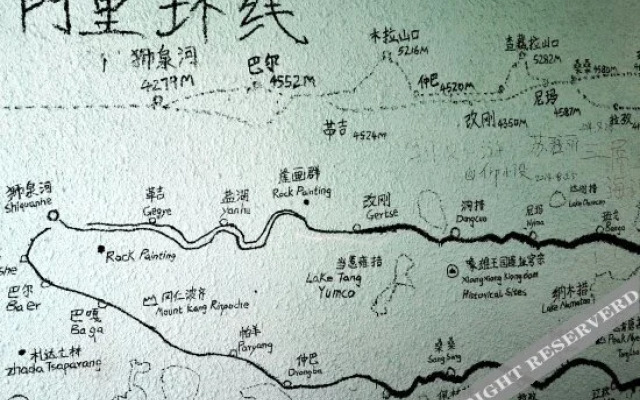 阿里环线
狮泉河
4279M
巴尔
4552M
木拉山口
5216M
仲巴
4520M
查藏拉山口
5282M
桑桑 4580M
尼玛
4587M
革吉
4524M
改则 4350M
狮泉河
Shiquanhe
革吉
Gegye
盐湖
Yanhu
岩画群
Rock Painting
改则
Gertse
洞措
Dongcuo
尼玛
Nyima
达则措
班戈
Bango
Rock Painting
当惹雍措
Lake Tang
Yumco
象雄王国遗址穹宗
XiangXiong Kiongdom
Historical Sites
纳木措
Lake Namutso
巴尔
Baer
巴嘎
Baga
冈仁波齐
Mount Kang Rinpoche
帕羊
Paryang
仲巴
Drongba
桑桑
Sangsang
札达土林
Zhada Tsaparang
RIGHT RESERVERD